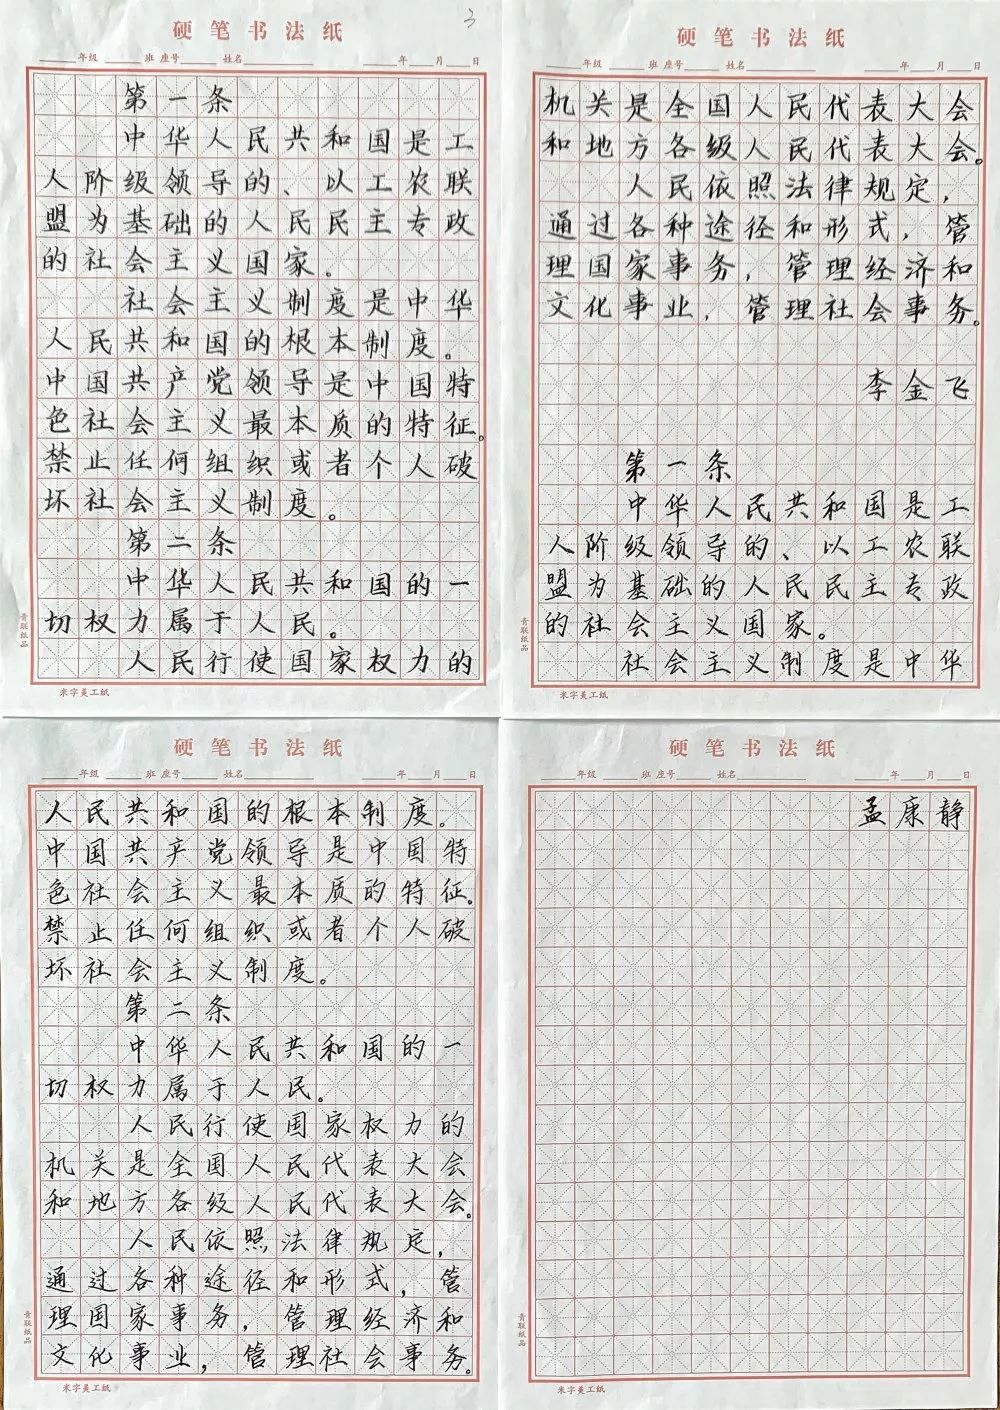 3
硬笔书法纸
年级 班 座号 姓名 年 月 日
第一条
中华人民共和国是工
人阶级领导的、以工农联
盟为基础的人民民主专政
的社会主义国家。
社会主义制度是中华
人民共和国的根本制度。
中国共产党领导是中国特
色社会主义最本质的特征。
禁止任何组织或者个人破
坏社会主义制度。
第二条
中华人民共和国的一
切权力属于人民。
人民行使国家权力的
青联纸品
米字美工纸
硬笔书法纸
年级 班 座号 姓名 年 月 日
机关是全国人民代表大会
和地方各级人民代表大会。
人民依照法律规定,
通过各种途径和形式,管
理国家事务,管理经济和
文化事业,管理社会事务。
李金飞
第一条
中华人民共和国是工
人阶级领导的、以工农联
盟为基础的人民民主专政
的社会主义国家。
社会主义制度是中华
青联纸品
米字美工纸
硬笔书法纸
年级 班 座号 姓名 年 月 日
人民共和国的根本制度。
中国共产党领导是中国特
色社会主义最本质的特征。
禁止任何组织或者个人破
坏社会主义制度。
第二条
中华人民共和国的一
切权力属于人民。
人民行使国家权力的
机关是全国人民代表大会
和地方各级人民代表大会。
人民依照法律规定,
通过各种途径和形式,管
理国家事务,管理经济和
文化事业,管理社会事务。
青联纸品
米字美工纸
硬笔书法纸
年级 班 座号 姓名 年 月 日
孟康静
青联纸品
米字美工纸